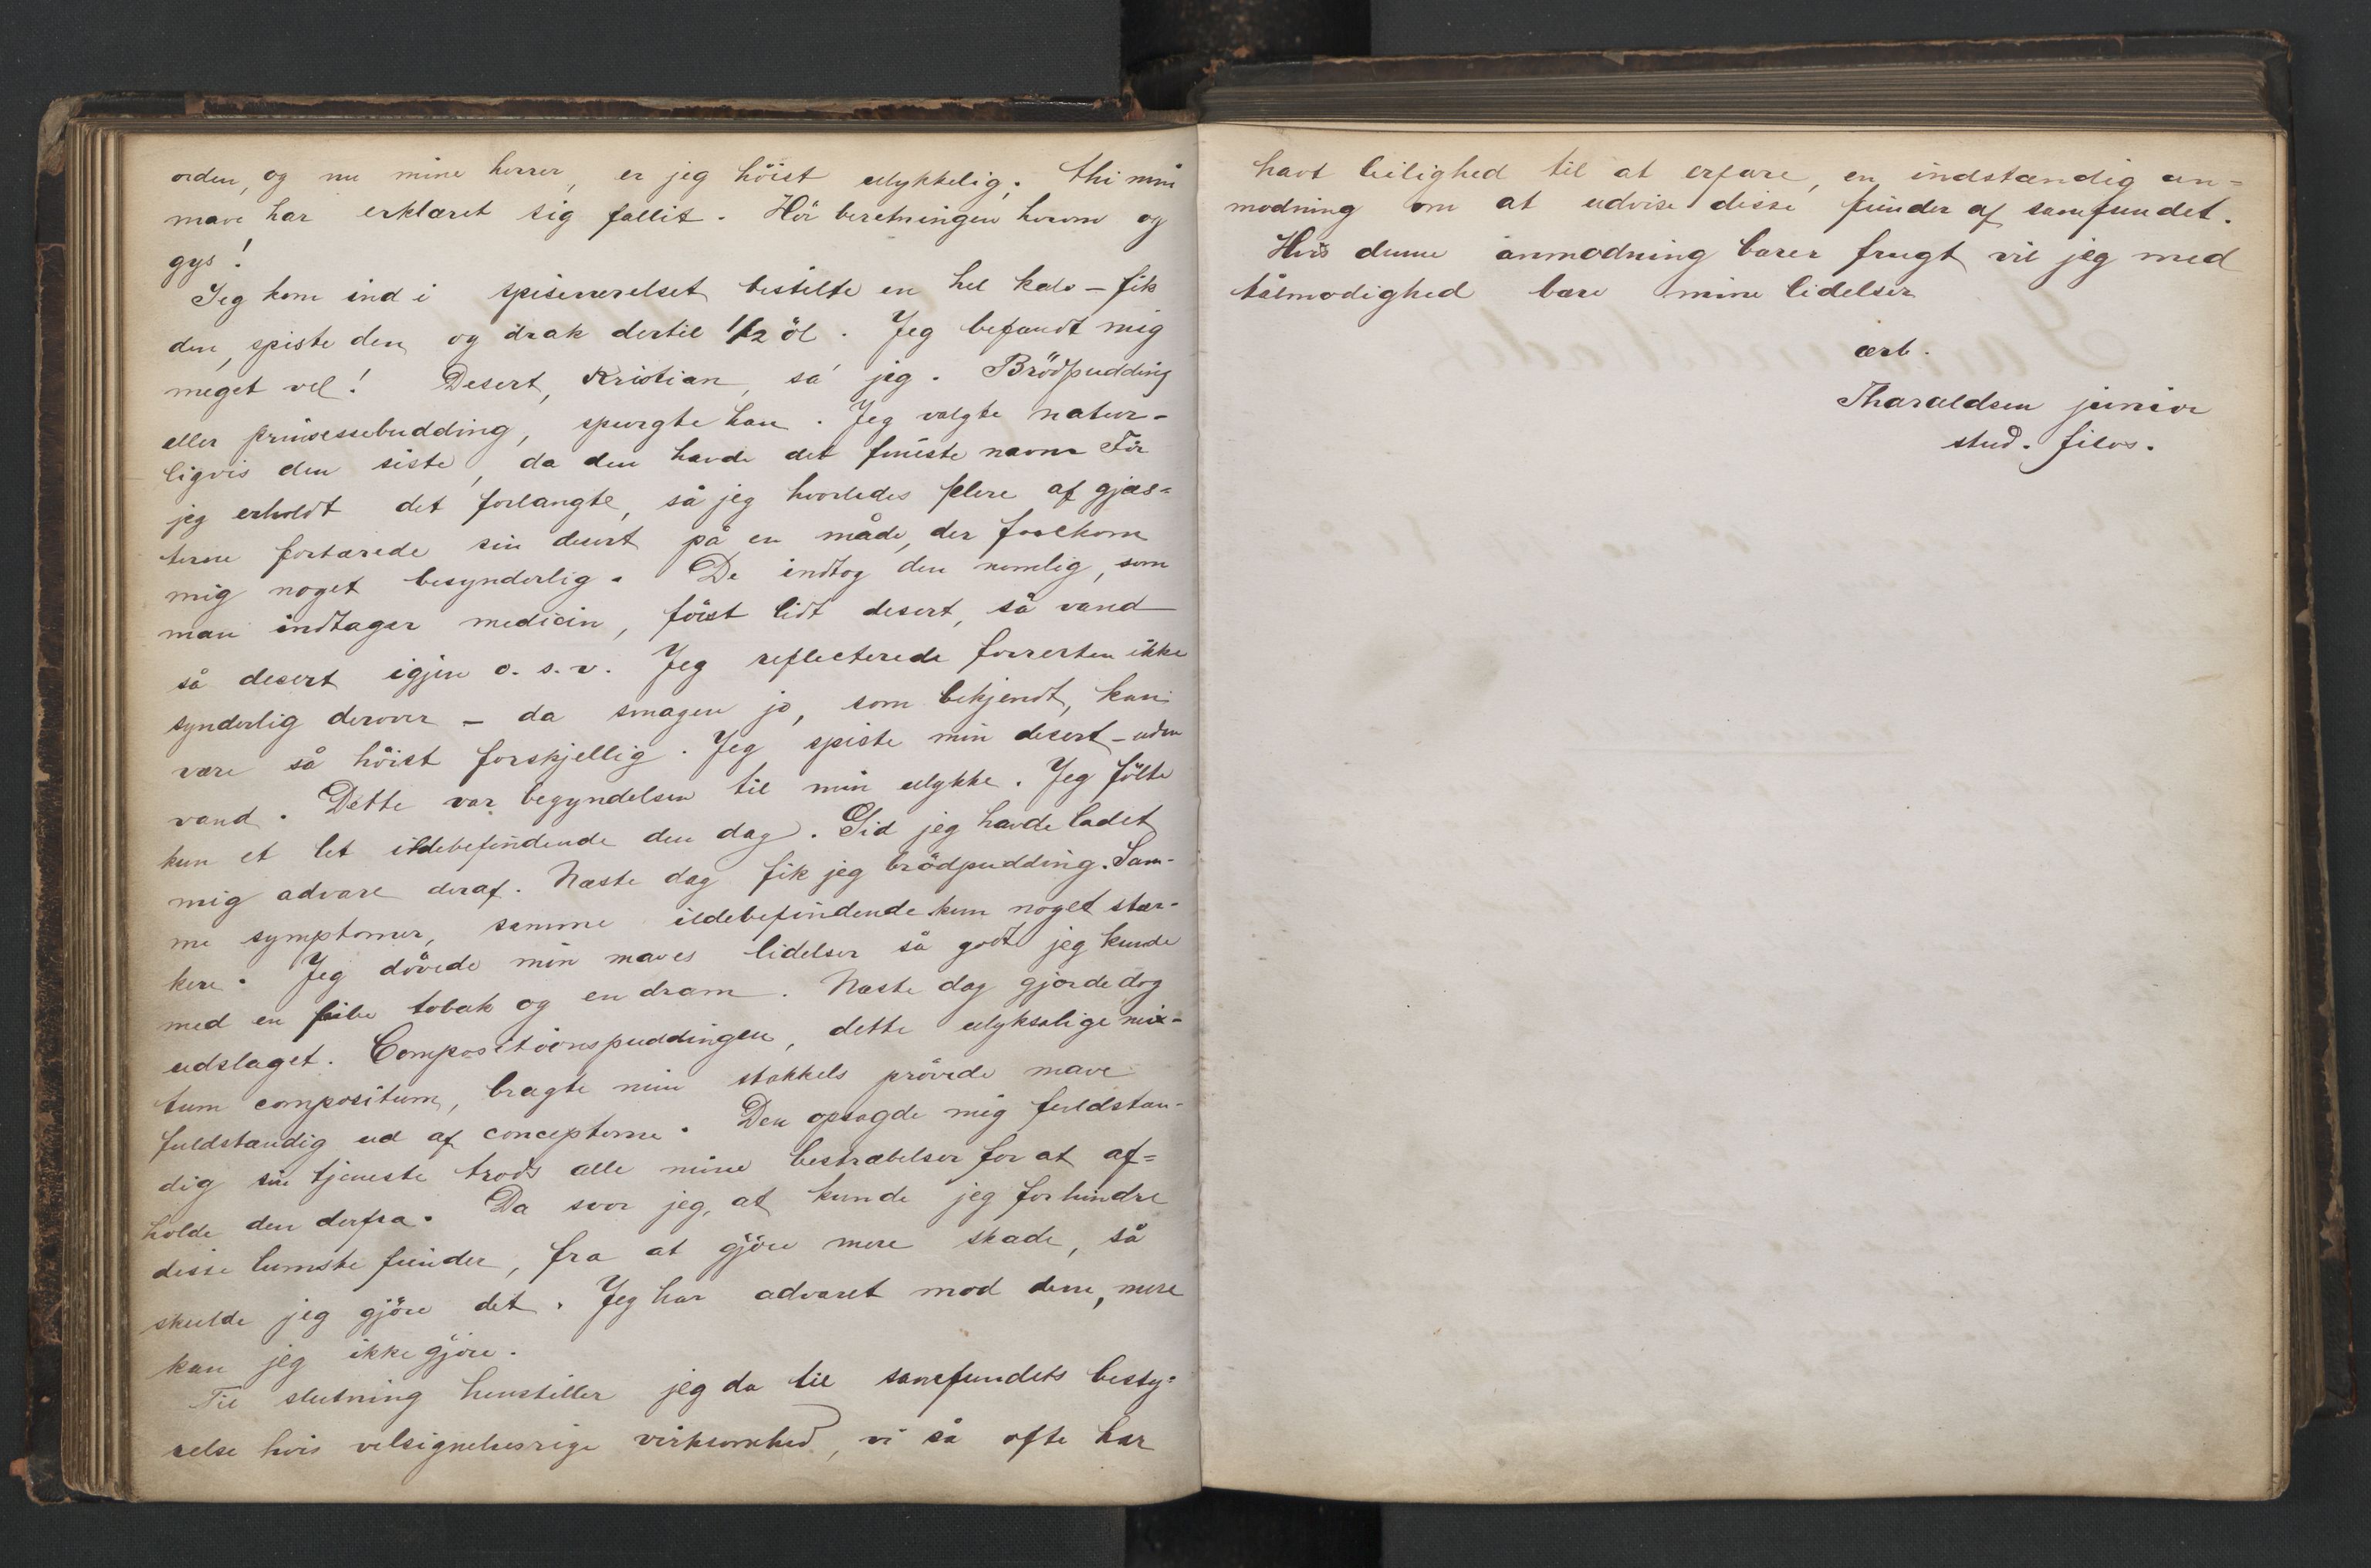 orden, og nu mine herrer, er jeg höist ulykkelig. Thi min
mave har erklæret sig fallit. Hör beretningen herom og
gys!
Jeg kom ind i spiseværelset bestilte en hel kalv – fik
den, spiste den og drak dertil 1/2 öl. Jeg befandt mig
meget vel! Desert, Kristian, sa' jeg. Brödpudding
eller prinsessebudding, spurgte han. Jeg valgte natur-
ligvis den siste, da den havde det fineste navn. För
jeg erholdt det forlangte, så jeg hvorledes flere af gjæs-
terne fortærede sin desert på en måde, der forekom
mig noget besynderlig. De indtog den nemlig, som
man indtager medicin, först lidt desert, så vand
så desert igjen o. s. v. Jeg reflecterede forresten ikke
synderlig derover – da smagen jo, som bekjendt, kan
være så höist forskjellig. Jeg spiste min desert – uden
vand. Dette var begyndelsen til min ulykke. Jeg fölte
kun et let ildebefindende den dag. Gid jeg havde ladet
mig advare deraf. Næste dag fik jeg brödpudding. Sam-
me symptomer, samme ildebefindende kun noget stær-
kere. Jeg dövede min maves lidelser så godt jeg kunde
med en pibe tobak og en dram. Næste dag gjorde dog
udslaget. Compositionspuddingen, dette ulyksalige mix-
tum compositum, bragte min stakkels prövede mave
fuldstændig ud af concepterne. Den opsagde mig fuldstæn-
dig sin tjeneste trods alle mine bestræbelser for at af-
holde den derfra. Da svor jeg, at kunde jeg forhindre
disse lumske fiender, fra at gjöre mere skade, så
skulde jeg gjöre det. Jeg har advaret mod dem, mere
kan jeg ikke gjöre.
Til slutning henstiller jeg da til samfundets besty-
relse hvis velsignelsesrige virksomhed, vi så ofte har
havt leilighed til at erfare, en indstændig an-
modning om at udvise disse fiender af samfundet.
Hvis denne anmodning bærer frugt vil jeg med
tålmodighed bære mine lidelser
ærb.
Tharaldsen junior
stud. filos.